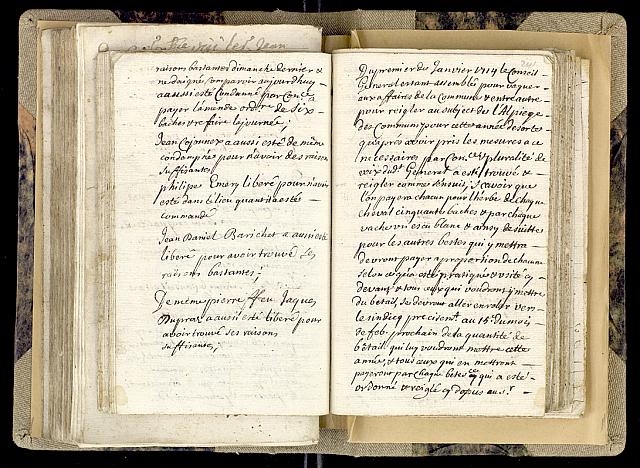 raisons bastantes dimanche dernier &
ne daigne comparoir aujourdhuy
a aussi esté Condamné par Conce a
payer l'emande ordre de Six
baches & refaire la journée;
Jean Cojonnex a aussi esté de même
condamné pour n'avoir des raison
suffisantes
philipe Emery liberé pour n'avoir
esté dans le lieu quant il a esté
commandé
Jean Daniel Barichet a aussi esté
liberé pour avoir trouvé ses
raisons bastantes;
Item pierre ffeu Jaques
Dupraz a aussi esté liberé pour
avoir trouvé ses raisons
suffisantes;
Du premier du Janvier 1714 le Conseil
General estant assemblés pour vaquer
aux affaires de la Commune & entre autre
pour reigler au subject de l'Alpéage
des Communs pour cette année desortes
qu'apres avoir pris les mesures a ce
necessaires par & pluralité de
voix dudt General a esté trouvé &
reigler comme s'ensuis, scavoir que
l'on payera chacun pour l'herbe de chaque
cheval cinquante baches & par chaque
vache un escu blanc & ainsy de suitte
pour les autres bestes qui y mettra
devront payer a proportion de chacune
selon ce qui a esté pratiqué & usité cy
devant & tous ceux qui voudront y mettre
du betail, se devront aller enroler vers
le sindicq precisement au 15e du mois
de feb. prochain de la quantité de
bétail qui luy voudront mettre cette
année, & tous ceux qui en mettront
payeront par chaque bêtes qui a esté
ordonné & reiglé cy dessus